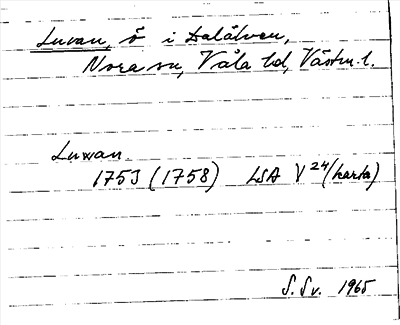 Luvan, ö i Dalälven,
Nora sn, Våla hd, Västm. l.
Luwan
1753 (1758) LSA V 24/ (karta)
S. Sv. 1965